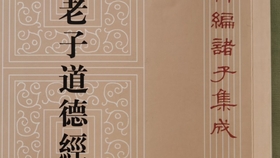 編諸子集成
老子道德經